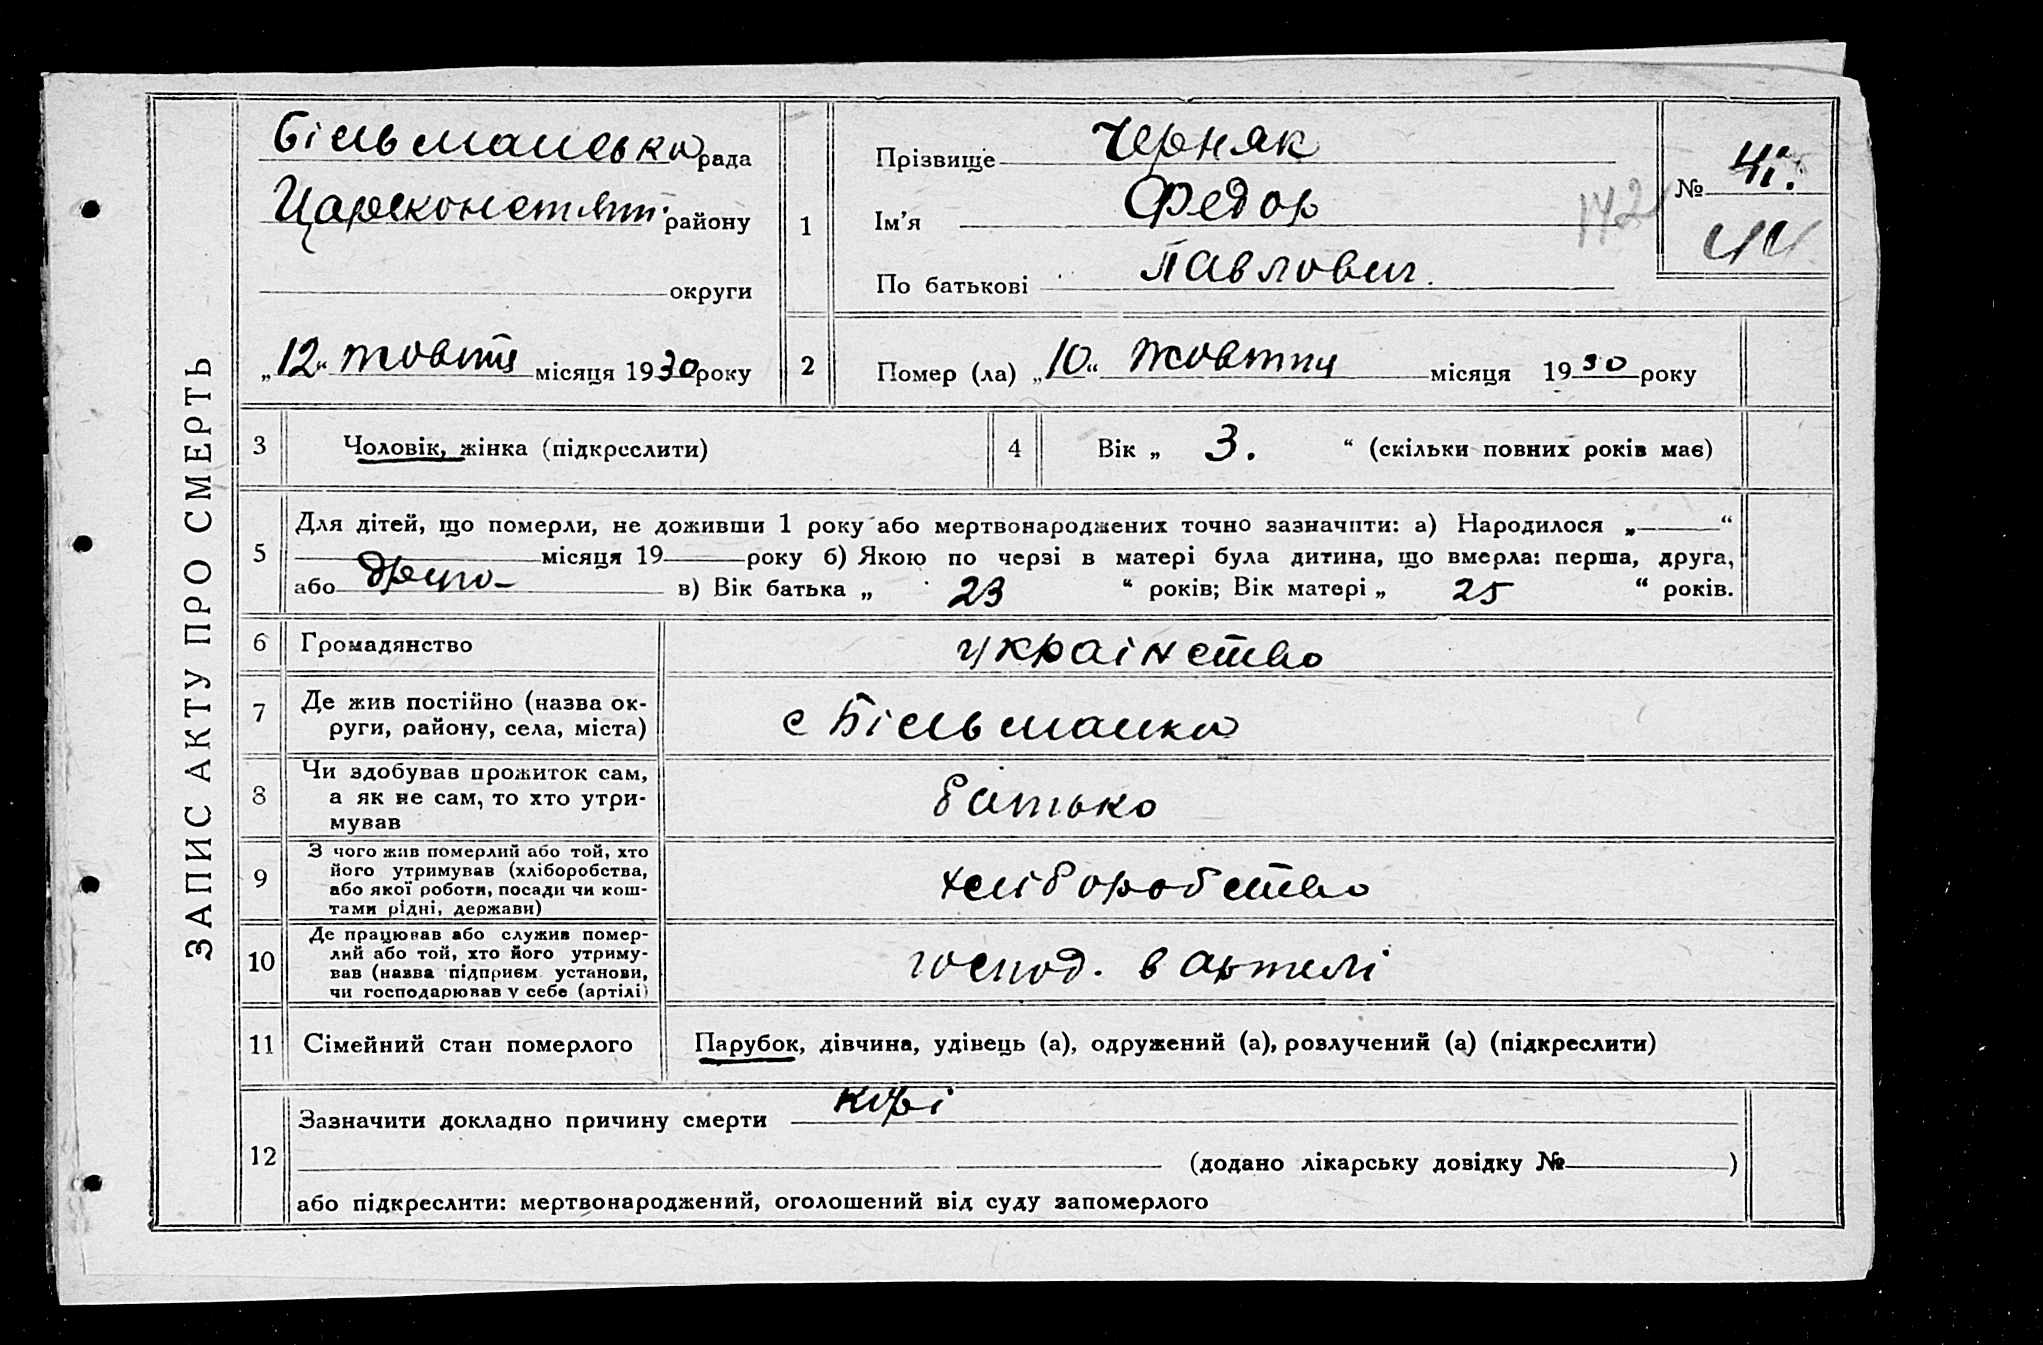 ЗАПИС АКТУ ПРО СМЕРТЬ
Більманська рада
Цареконстянт. району
округи
„12“ жовтня місяця 1930 року
1
Прізвище Черняк
Ім’я Федор
По батькові Павлович.
№ 41.
142
44
2
Помер (ла) „10“ жовтня місяця 1930 року
3
Чоловік, жінка (підкреслити)
4
Вік „ 3. “ (скільки повних років має)
5
Для дітей, що померли, не доживши 1 року або мертвонароджених точно зазначити: а) Народилося „——“
місяця 19 року б) Якою по черзі в матері була дитина, що вмерла: перша, друга,
або в) Вік батька „ 23 “ років; Вік матері „ 25 “ років.
6
Громадянство
українство
7
Де жив постійно (назва ок-
руги, району, села, міста)
с Більманка
8
Чи здобував прожиток сам,
а як не сам, то хто утри-
мував
батько
9
З чого жив померлий або той, хто
його утримував (хліборобства,
або якої роботи, посади чи кош-
тами рідні, держави)
хліборобство
10
Де працював або служив помер-
лий або той, хто його утриму-
вав (назва підприєм. установи,
чи господарював у себе (артілі)
господ. в артелі
11
Сімейний стан померлого
Парубок, дівчина, удівець (а), одружений (а), розлучений (а) (підкреслити)
12
Зазначити докладно причину смерти корі
(додано лікарську довідку № )
або підкреслити: мертвонароджений, оголошений від суду запомерлого